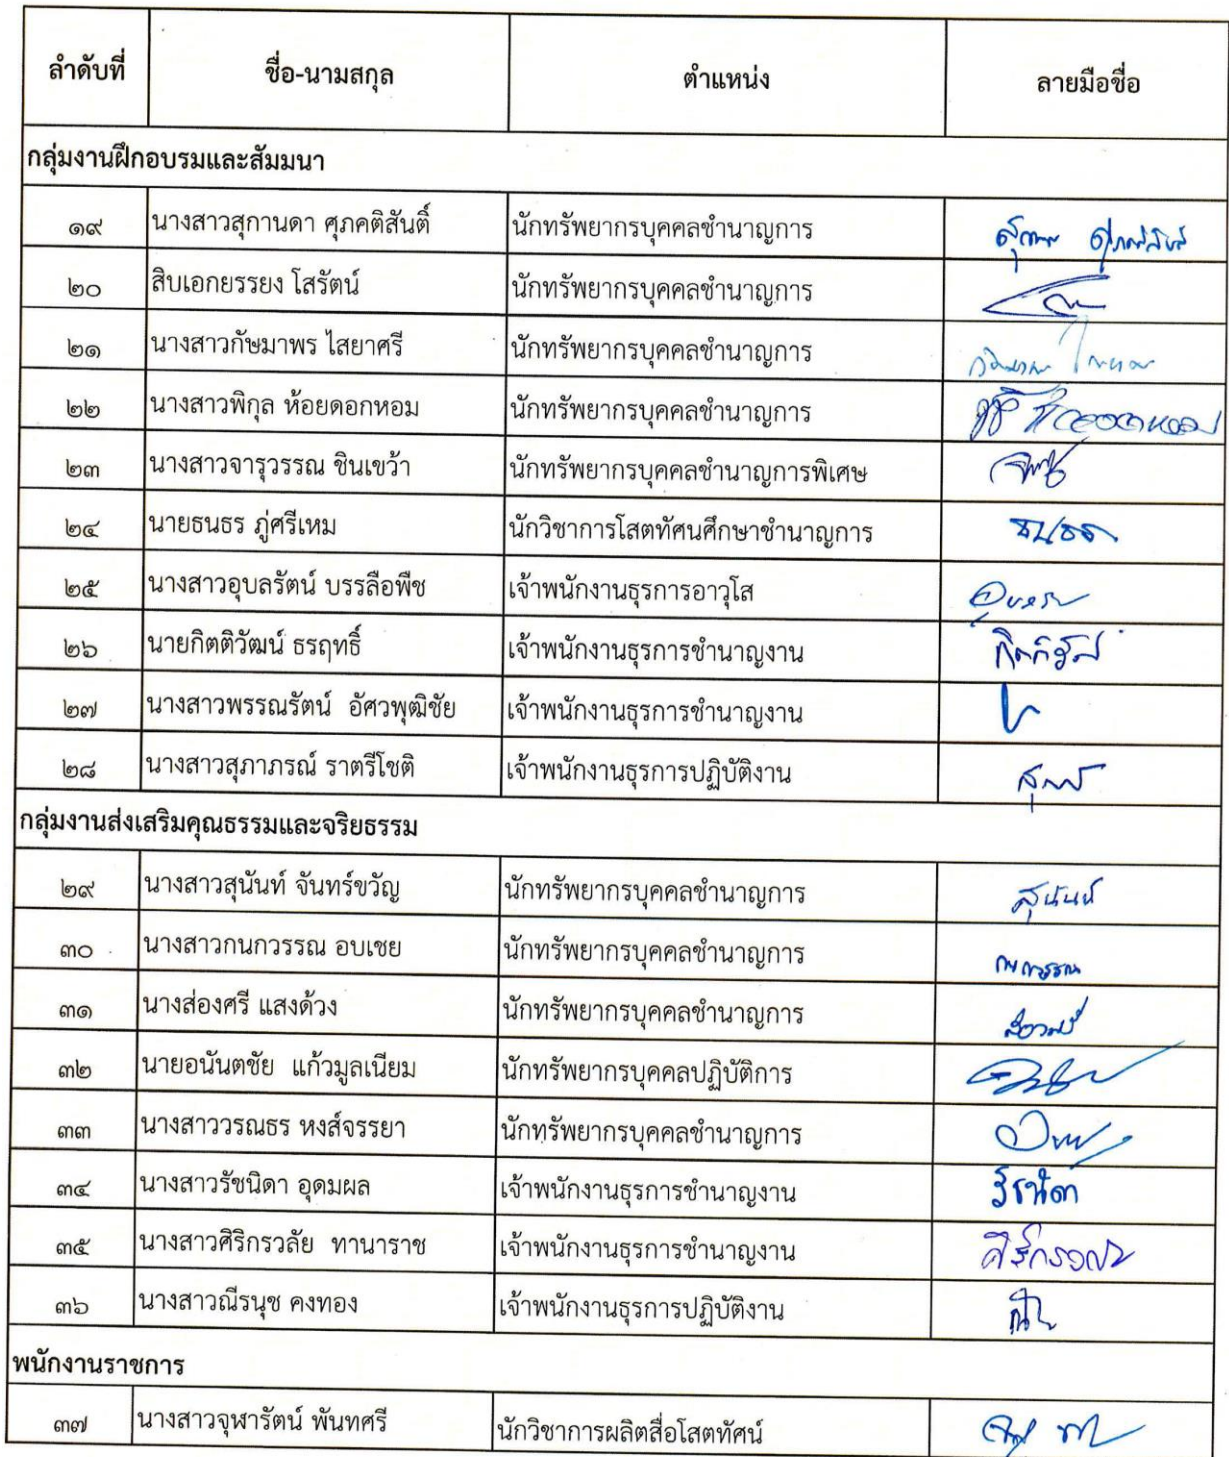 ลำดับที่ ชื่อ-นามสกุล ตำแหน่ง ลายมือชื่อ
กลุ่มงานฝึกอบรมและสัมมนา
๑๙ นางสาวสุกานดา ศุภคติสันติ์ นักทรัพยากรบุคคลชำนาญการ
๒๐ สิบเอกยรรยง โสรัตน์ นักทรัพยากรบุคคลชำนาญการ
๒๑ นางสาวกัษมาพร ไสยาศรี นักทรัพยากรบุคคลชำนาญการ
๒๒ นางสาวพิกุล ห้อยดอกหอม นักทรัพยากรบุคคลชำนาญการ
๒๓ นางสาวจารุวรรณ ชินเขว้า นักทรัพยากรบุคคลชำนาญการพิเศษ
๒๔ นายธนธร ภู่ศรีเหม นักวิชาการโสตทัศนศึกษาชำนาญการ ธนธร
๒๕ นางสาวอุบลรัตน์ บรรลือพืช เจ้าพนักงานธุรการอาวุโส
๒๖ นายกิตติวัฒน์ ธรฤทธิ์ เจ้าพนักงานธุรการชำนาญงาน
๒๗ นางสาวพรรณรัตน์ อัศวพุฒิชัย เจ้าพนักงานธุรการชำนาญงาน
๒๘ นางสาวสุภาภรณ์ ราตรีโชติ เจ้าพนักงานธุรการปฏิบัติงาน
กลุ่มงานส่งเสริมคุณธรรมและจริยธรรม
๒๙ นางสาวสุนันท์ จันทร์ขวัญ นักทรัพยากรบุคคลชำนาญการ สุนันท์
๓๐ นางสาวกนกวรรณ อบเชย นักทรัพยากรบุคคลชำนาญการ กนกวรรณ
๓๑ นางส่องศรี แสงด้วง นักทรัพยากรบุคคลชำนาญการ
๓๒ นายอนันตชัย แก้วมูลเนียม นักทรัพยากรบุคคลปฏิบัติการ
๓๓ นางสาววรณธร หงส์จรรยา นักทรัพยากรบุคคลชำนาญการ
๓๔ นางสาวรัชนิดา อุดมผล เจ้าพนักงานธุรการชำนาญงาน รัชนิดา
๓๕ นางสาวศิริกรวลัย ทานาราช เจ้าพนักงานธุรการชำนาญงาน
๓๖ นางสาวณีรนุช คงทอง เจ้าพนักงานธุรการปฏิบัติงาน
พนักงานราชการ
๓๗ นางสาวจุฬารัตน์ พันทศรี นักวิชาการผลิตสื่อโสตทัศน์